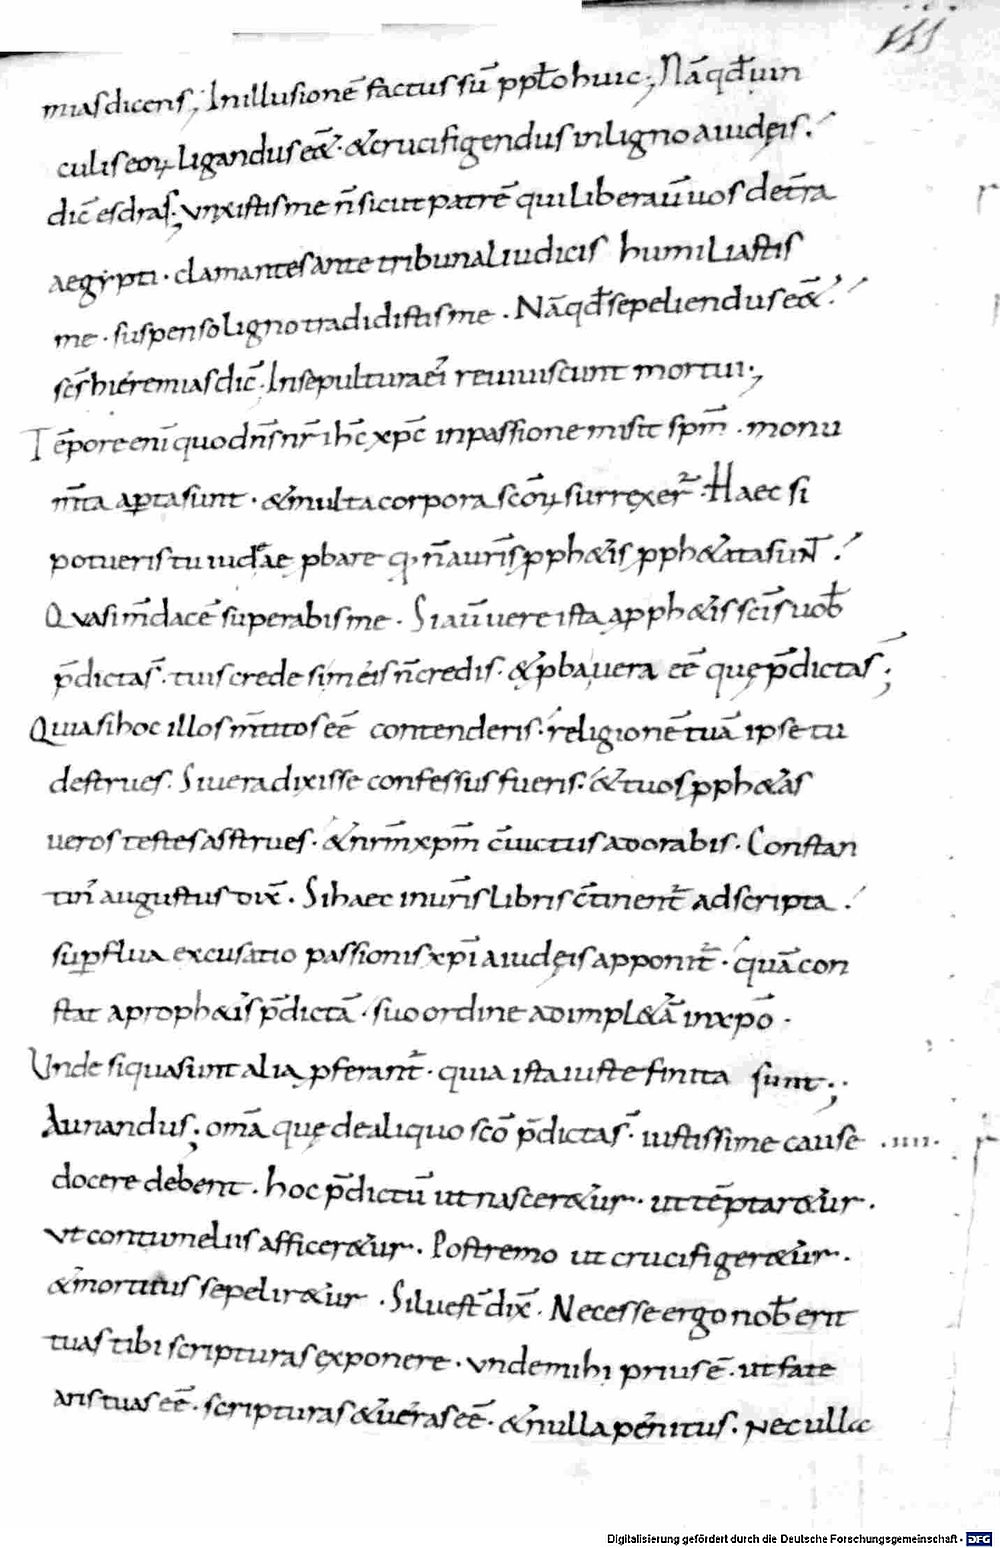 iii
miasdicens; Inillusionē factus sū pplō huic; Nā qđ uin
culis eoꝝ ligandus eēt· & crucifigendus inligno aiudęis·
dic̄ esdras; vnxistis me n̄ sicut patrē qui liberauit̄ uos detr̄a
aegypti · clamantes ante tribunal iudicis humiliastis
me · suspenso ligno tradidistis me · Nā qđ sepeliendus eēt·
sc̄s hieremias dic̄ · Insepultura ei reuiuiscunt mortui;
Tēpore enī quo dn̄s nr̄ ih̄c xp̄c inpassione misit sp̄m · monu
m̄ta aꝑta sunt · & multa corpora sc̄oꝝ surrexer̄ · Haec si
potueris tu iudęae pbare q· n̄ aur̄is pph&is pph&ata sunt ·
Quasi m̄dacē superabis me · Si aut̄ uere ista a pph&is sc̄is uob̄
p̄dicta s̄· tuis crede si mēis n̄ credis· & pba uera eē que p̄dicta s̄;
Quia si hoc illos m̄titos eē contenderis· religionē tuā ipse tu
destrues· Si uera dixisse confessus fueris· & tuos pph&as
ueros testes asstrues· & nr̄m xp̄m c̄uictus adorabis· Constan
tin̄ augustus dix̄ · Si haec inur̄is libris c̄tinent̄ adscripta ·
suꝑflua excusatio passionis xp̄i aiudęis apponit̄ · quā con
stat aproph&is p̄dictā · suo ordine adimpl&ā inxp̄o ·
Unde si qua sunt alia pferant̄ · quia ista iuste finita sunt;
Aunandus; om̄a que dealiquo sc̄o p̄dicta s̄· iustissime cause · iiii ·
docere debent · hoc p̄dictū ut nascer&ur · ut tēptar&ur ·
vt contumeliis afficer&ur · Postremo ut crucifiger&ur ·
& mortuus sepelir&ur · Siluest̄ dix̄ · Necesse ergo nob̄ erit
tuas tibi scripturas exponere · vnde mihi prius ē · ut fate
aris tuas eē · scripturas & ueras eē · & nulla penitus · Nec ulla
Digitalisierung gefördert durch die Deutsche Forschungsgemeinschaft - DFG